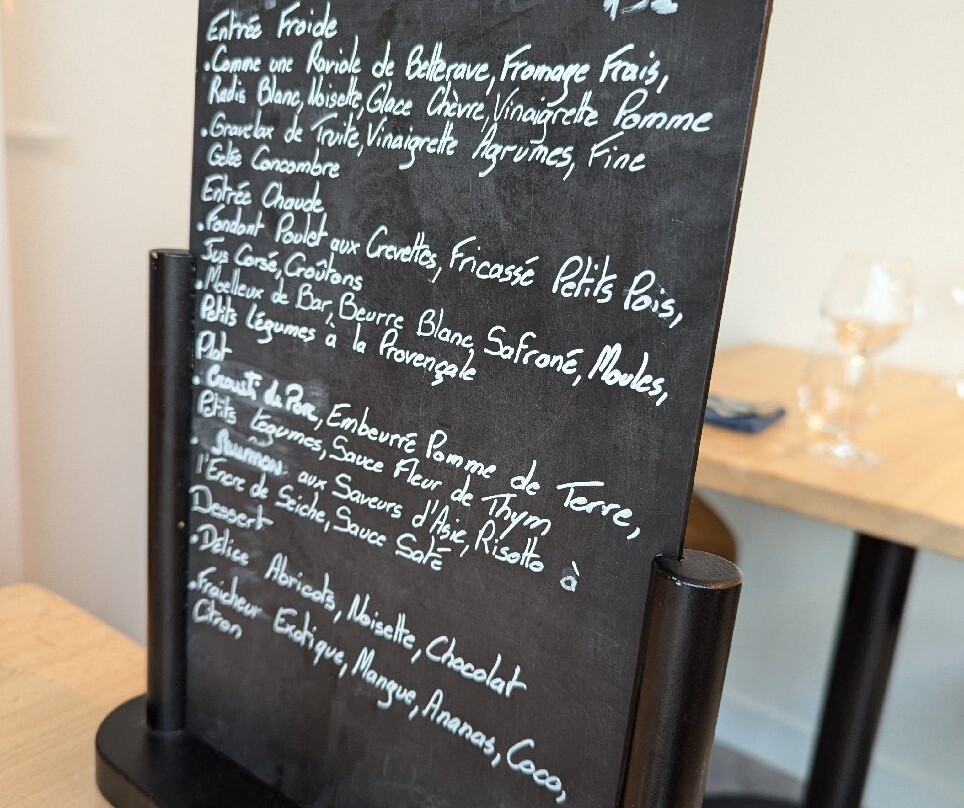 Entrée Froide
. Comme une Raviole de Betterave, Fromage Frais,
Radis Blanc, Noisette, Glace Chèvre, Vinaigrette Pomme
. Gravelax de Truite, Vinaigrette Agrumes, Fine
Gelée Concombre
Entrée Chaude
. Fondant Poulet aux Crevettes, Fricassé Petits Pois,
Jus Corsé, Croûtons
. Moelleux de Bar, Beurre Blanc Safroné, Moules,
Petits Légumes à la Provençale
Plat
. Crousti de Porc, Embeurré Pomme de Terre,
Petits Légumes, Sauce Fleur de Thym
. aux Saveurs d'Asie, Risotto à
l'Encre de Seiche, Sauce Saté
Dessert
. Délice Abricots, Noisette, Chocolat
. Fraîcheur Exotique, Mangue, Ananas, Coco,
Citron